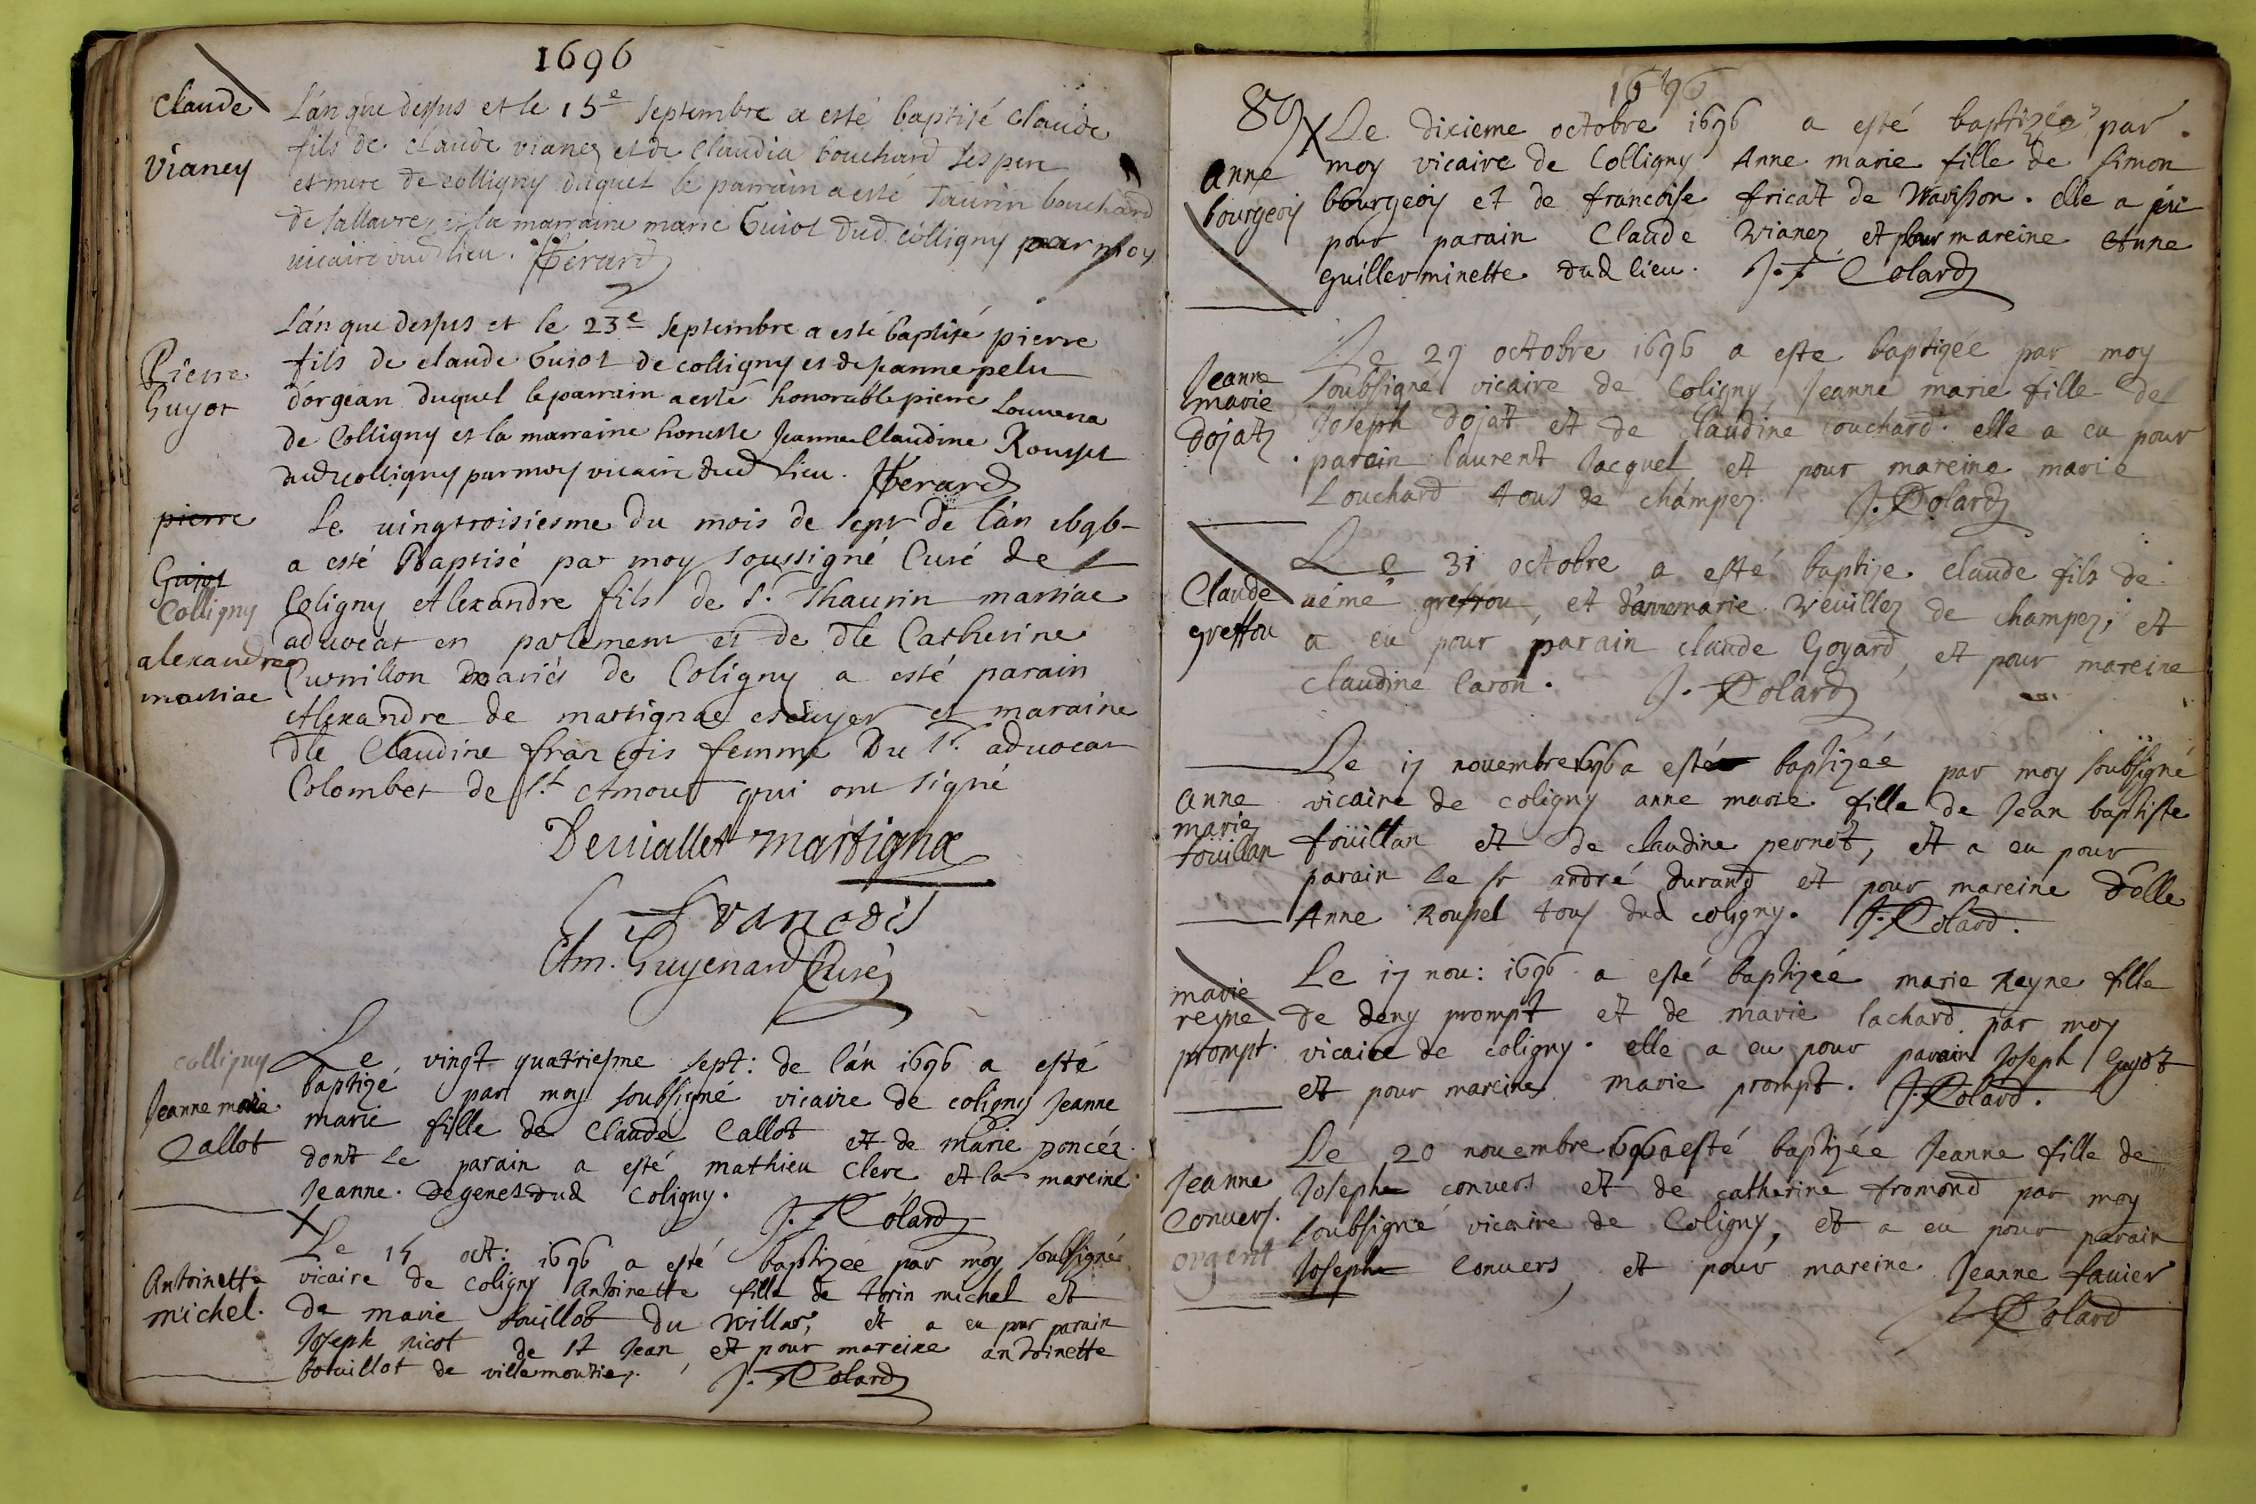 1696
Claude
Vianey
L'an que dessus et le 15e septembre a esté baptisé Claude
fils de Claude vianey et de Claudia bouchard ses pere
et mere de colligny duquel le parrain a esté Taurin bouchard
de sallavre et la marraine marie Guiot dud colligny par moy
vicaire dud lieu.
Pierre
Guyot
L'an que dessus et le 23e septembre a esté baptisé pierre
fils de claude Guiot de colligny et de jeanne pelu
d'orgean duquel le parrain a esté honorable pierre
de Colligny et la marraine honeste Jeanne Claudine Rousset
dud colligny par moy vicaire dud lieu.
pierre
Guiot
Colligny
alexandre
martiac
Le vingtroisiesme du mois de sepr de l'an
a esté Baptisé par moy soussigné Curé de
Coligny Alexandre fils de Sr. Thaurin martiac
advocat en parlement et de dlle Catherine
Cuvrillon mariés de Coligny a esté parain
Alexandre de martignac escuyer et maraine
dlle Claudine francois femme Du Sr. advocat
Colombet de St Amour qui ont signé
Deviallet martignac
C Francois
Am. Guyenard Curé
colligny
Jeanne marie
Callot
Le vingt quatriesme sept: de l'an 1696 a esté
baptizé par moy soubsigné vicaire de coligny Jeanne
marie fille de Claude Callot et de marie poncéz
dont le parain a esté mathieu Clerc et la mareine
Jeanne degenes dud coligny. J. F Colard
Antoinette
michel.
Le 14 oct: 1696 a esté baptizée par moy soubsigné
vicaire de coligny Antoinette fille de torin michel et
de marie bouillot du villar, et a eu pour parain
Joseph nicot de St Jean et pour mareine antoinette
bouillot de villemoutier. J. F Colard
1696
89
Anne
bourgeois
Le dixieme octobre 1696 a esté baptizée par
moy vicaire de Colligny Anne marie fille de Simon
bourgeois et de francoise fricat de Wavisson. elle a
pour parain Claude Vianez et pour mareine Anne
guillerminette dud lieu. J. F Colard
Jeanne
marie
dojat
Le 29 octobre 1696 a esté baptizée par moy
soubsigné vicaire de Coligny Jeanne marie fille de
Joseph dojat et de Claudine Couchard. elle a eu pour
parain laurent Jacquet et pour mareine marie
Couchard tous de champez. J. F Colard
Claude
greffou
Le 31 octobre a esté baptize claude fils de
aémé greffou, et d'annemarie Weuillez de champez, et
a eu pour parain claude Goyard, et pour mareine
Claudine Caron. J. F Colard
Anne
marie
fouillan
Le 17 novembre 1696 a esté baptizée par moy soubsigné
vicaire de coligny anne marie fille de Jean baptiste
foüillan et de claudine pernet, et a eu pour
parain le sr andré durand et pour mareine d'elle
Anne Roussel tous dud coligny. J. F Colard.
marie
reyne
prompt.
Le 17 nou: 1696 a esté baptizée marie Reyne fille
de deny prompt et de marie lachard par moy
vicaire de coligny. elle a eu pour parain Joseph Guyot
et pour mareine marie prompt. J. F Colard.
Jeanne
Convers.
orgent
Le 20 novembre 1696 a esté baptizée Jeanne fille de
Joseph convers et de catherine fromond par moy
soubsigné vicaire de Coligny, et a eu pour parain
Joseph Convers, et pour mareine Jeanne favier
J. F Colard